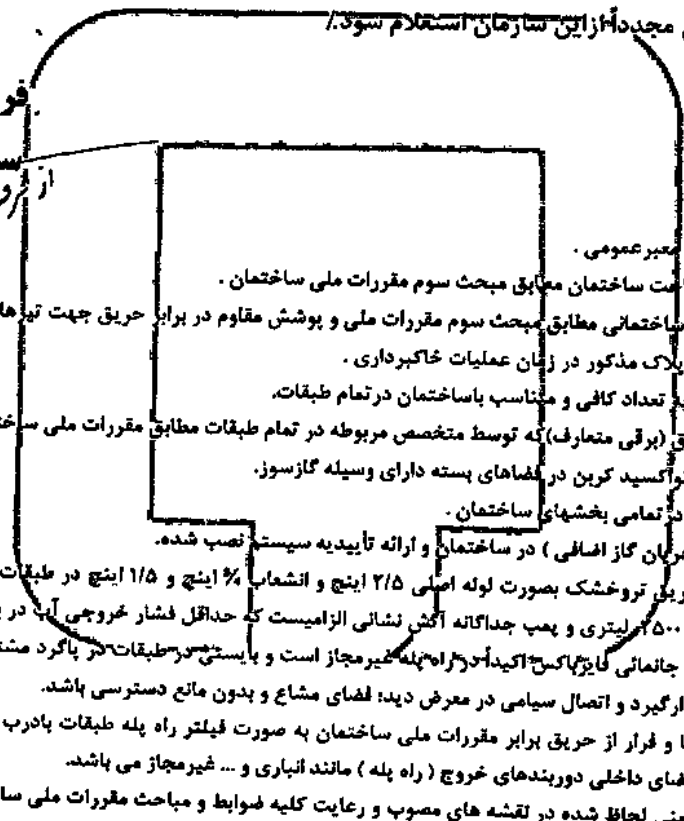 مجدداً از این سازمان استعلام شود./
از
معبر عمومی .
ساختمان مطابق مبحث سوم مقررات ملی ساختمان .
ساختمانی مطابق مبحث سوم مقررات ملی و پوشش مقاوم در برابر حریق جهت تیرها
پلاک مذکور در زمان عملیات خاکبرداری .
تعداد کافی و متناسب باساختمان درتمام طبقات.
(برقی متعارف)که توسط متخصص مربوطه در تمام طبقات مطابق مقررات ملی
کربن در فضاهای بسته دارای وسیله گازسوز.
در تمامی بخشهای ساختمان .
جریان گاز اضافی ) در ساختمان و ارائه تأییدیه سیستم نصب شده.
تروخشک بصورت لوله اصلی ۲/۵ اینچ و انشعاب ¾ اینچ و ۱/۵ اینچ در طبقات
لیتری و پمپ جداگانه آتش نشانی الزامیست که حداقل فشار خروجی آب در
جانمائی فایرباکس اکیداً در راه پله غیرمجاز است و بایستی در طبقات در پاگرد
و اتصال سیامی در معرض دید؛ فضای مشاع و بدون مانع دسترسی باشد.
و فرار از حریق برابر مقررات ملی ساختمان به صورت فیلتر راه پله طبقات بادرب
داخلی دوربندهای خروج ( راه پله ) مانند انباری و ... غیرمجاز می باشد.
لحاظ شده در نقشه های مصوب و رعایت کلیه ضوابط و مباحث مقررات ملی